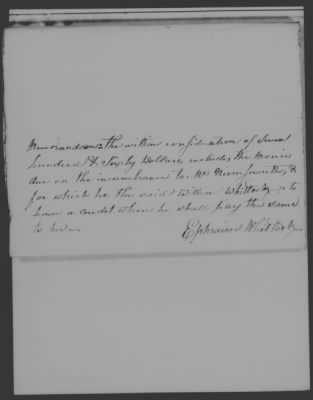 Memorandum the within consideration of Seven
hundred & sixty Dollars, includes the Monies
due on the incumbrance to Mr. &
for which he the said William Whitlock is to
have a credit when he shall pay the same
to him
Ephraim Whitlock